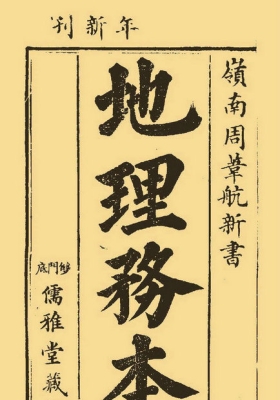 年新刊
嶺南周葦航新書
地理務本
雙門底
儒雅堂藏